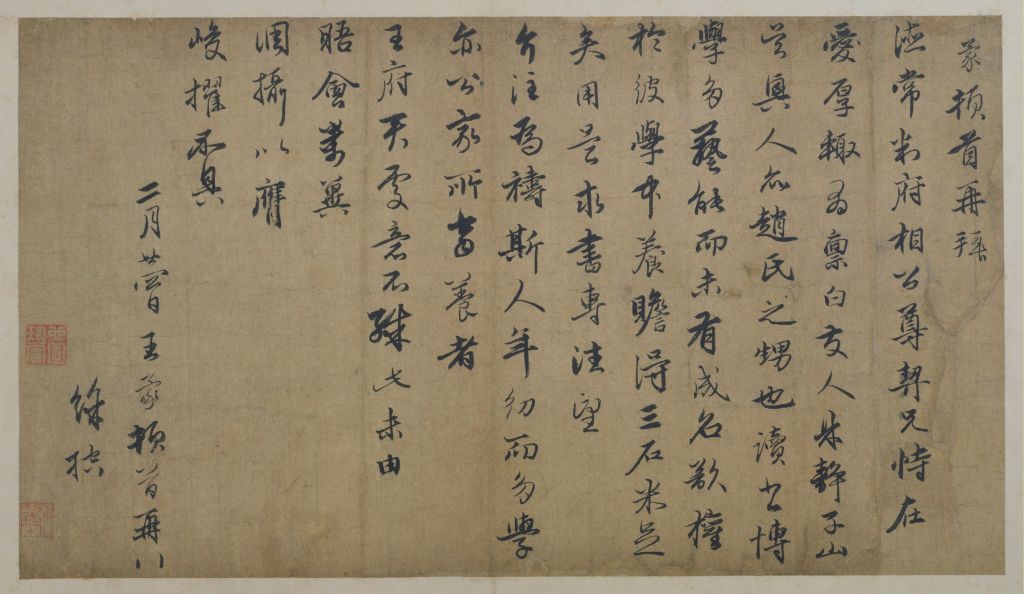 蒙頓首再拜
德常判府相公尊契兄侍在
愛厚輒為稟白友人林靜子山
吳興人亦趙氏之甥也讀書博
學多藝能而未有成名欲權
於彼學中養贍得三石米足
矣用是求書專注望
介注為禱斯人年幼而多學
亦公家所當養者
王府天處意不殊此未由
晤會萬冀
調攝以膺
峻擢不具
二月廿四日王蒙頓首再